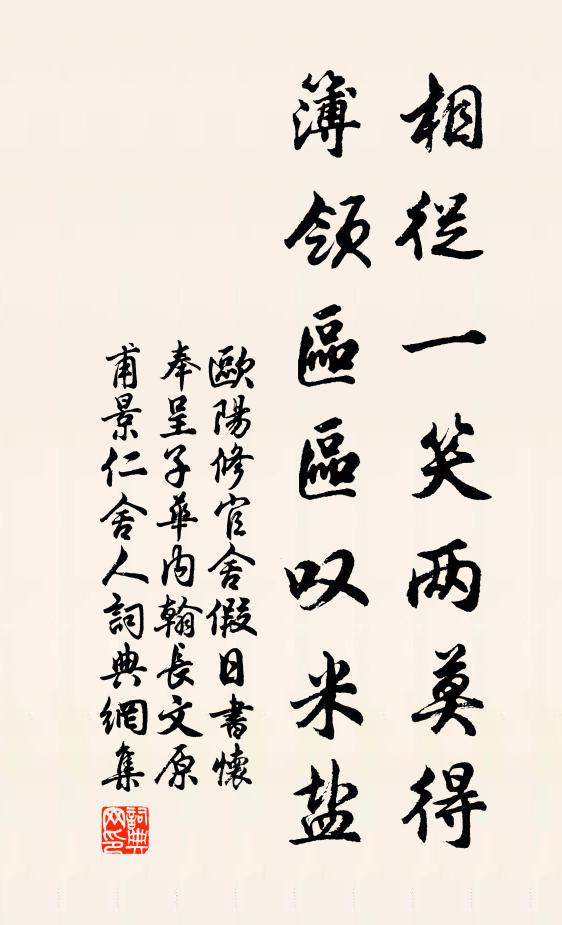 相從一笑两莫得
簿領區區叹米盐
歐陽修官舍假日書懷
奉呈子華内翰長文原
甫景仁舍人詞典網集
詞典网印